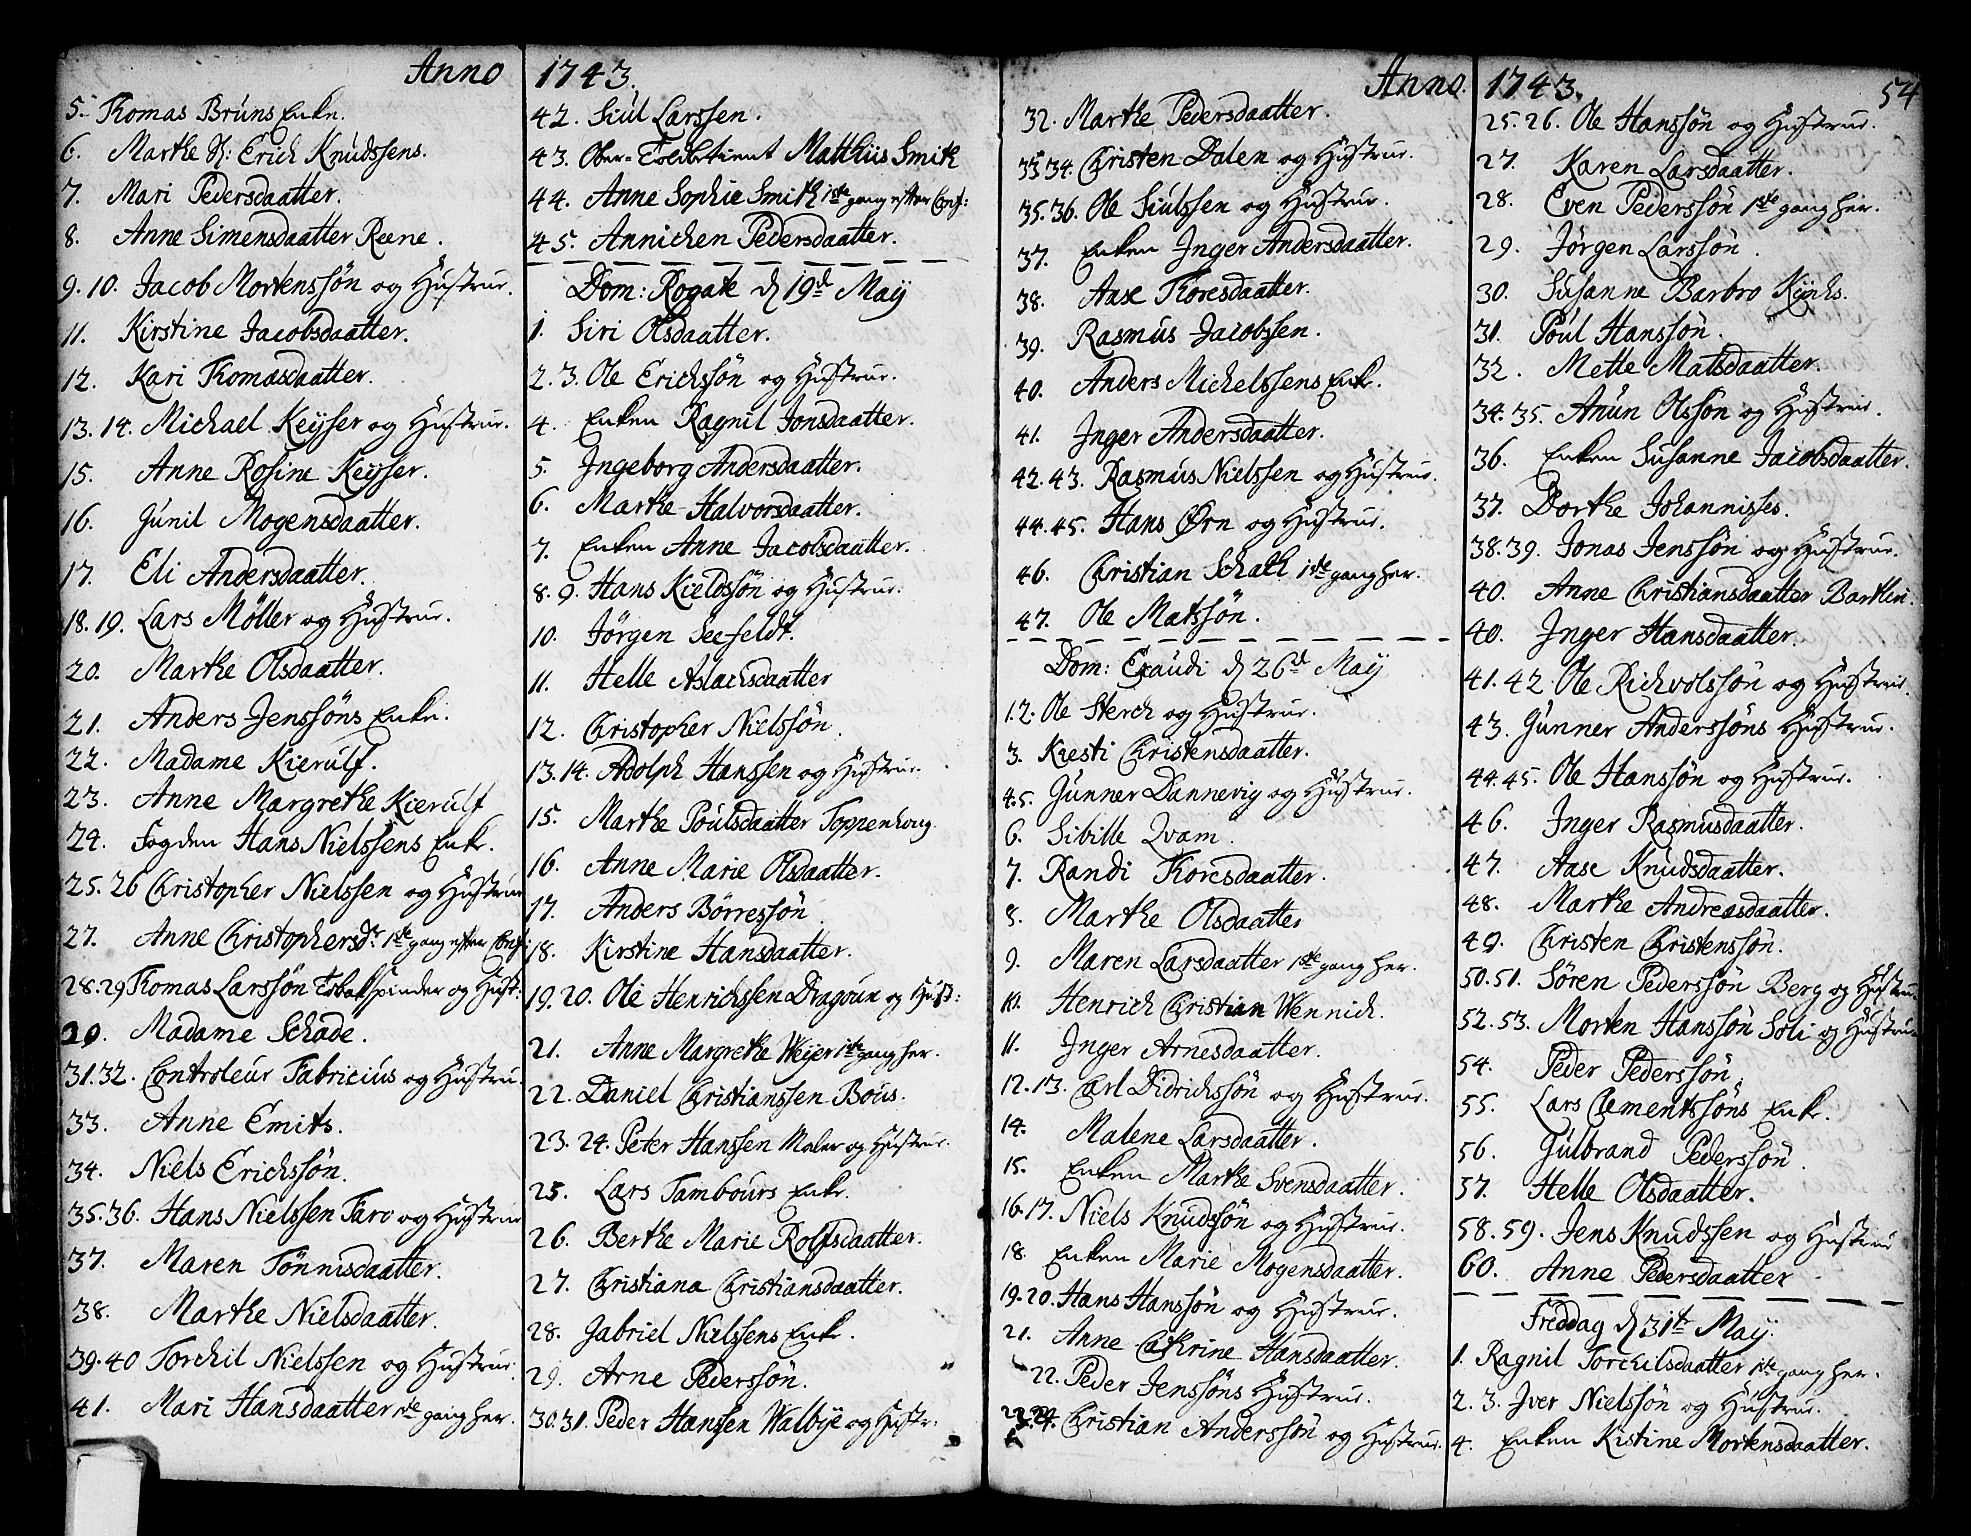 Anno 1743.
5. Thomas Bruns Enke.
6. Marthe Sl: Erich Knudssens.
7. Mari Pedersdaatter.
8. Anne Simensdaatter Reene.
9. 10. Jacob Mortenssön og Hustrue.
11. Kirstine Jacobsdaatter.
12. Kari Thomasdaatter.
13. 14. Michael Keyser og Hustrue.
15. Anne Rosine Keyser.
16. Gunil Mogensdaatter.
17. Eli Andersdaatter.
18. 19. Lars Möller og Hustrue.
20. Marthe Olsdaatter.
21. Anders Jenssöns Enke.
22. Madame Kierulf.
23. Anne Margrethe Kierulf
24. Fogden Hans Nielssens Enke.
25. 26 Christopher Nielssen og Hustrue
27. Anne Christophersdr. 1ste gang efter Conf:
28. 29 Thomas Larssön Tobakspinder og Hust:
30. Madame Schade.
31. 32. Controleur Fabricius og Hustru.
33. Anne Emits.
34. Niels Erichssön.
35. 36. Hans Nielssen Faro og Hustrue
37. Maren Tönnisdaatter.
38. Marthe Nielsdaatter.
39. 40 Torchil Nielssen og Hustrue.
41. Mari Hansdaatter 1ste gang her.
42. Siul Larssen.
43. Ober- Matthiis Smith
44. Anne Sophie Smith 1ste gang efter Conf:
45. Annichen Pedersdaatter.
Dom: Rogate d 19d May
1. Siri Olsdaatter.
2. 3. Ole Erichssön og Hustrue.
4. Enken Ragnil Jonsdaatter.
5. Ingeborg Andersdaatter.
6. Marthe Halvorsdaatter.
7. Enken Anne Jacobsdaatter.
8. 9. Hans Kieldssön og Hustrue.
10. Jörgen Seefeldt.
11. Helle Aslachsdaatter
12. Christopher Nielssön.
13. 14. Adolph Hanssen og Hustrue.
15. Marthe Poulsdaatter Toppenhoug.
16. Anne Marie Olsdaatter.
17. Anders Börressön.
18. Kirstine Hansdaatter.
19. 20. Ole Henrichssen Dragoun og Hust:
21. Anne Margrethe Weyer 1ste gang her.
22. Daniel Christianssen Bous.
23. 24. Peter Hanssen Maler og Hustrue.
25. Lars Tambours Enke.
26. Berthe Marie Rolfsdaatter.
27. Christiana Christiansdaatter.
28. Gabriel Nielssens Enke.
29. Arne Pederssön.
30. 31. Peder Hanssen Walbye og Hustr:
Anno. 1743. 54
32. Marthe Pedersdaatter.
33 34. Christen Dalen og Hustrue.
35. 36. Ole Siulssen og Hustrue.
37. Enken Inger Andersdaatter.
38. Aase Thoresdaatter.
39. Rasmus Jacobssen.
40. Anders Michelssens Enke.
41. Inger Andersdaatter.
42. 43. Rasmus Nielssen og Hustrue.
44. 45. Hans Örn og Hustrue.
46. Christian Schach 1ste gang her.
47. Ole Matssön.
Dom: Exaudi d 26d May
1. 2. Ole Sterch og Hustrue.
3. Kiesti Christensdaatter.
4. 5. Gunner Dannevig og Hustrue.
6. Sibille Qvam.
7. Randi Thoresdaatter.
8. Marthe Olsdaatter
9. Maren Larsdaatter 1ste gang her.
10. Henrich Christian Wennich.
11. Inger Arnesdaatter.
12. 13. Carl Didrichssön og Hustrue.
14. Malene Larsdaatter.
15. Enken Marthe Svensdaatter.
16. 17. Niels Knudssön og Hustrue.
18 Enken Marie Mogensdaatter.
19. 20. Hans Hanssön og Hustrue.
21. Anne Cathrine Hansdaatter.
22. Peder Jenssöns Hustrue.
23. 24. Christian Anderssön og Hustrue.
25. 26. Ole Hanssön og Hustrue.
27. Karen Larsdaatter.
28. Even Pederssön 1ste gang her.
29. Jörgen Larssön.
30. Susanne Barbro Kynhs.
31. Poul Hanssön.
32. Mette Matsdaatter.
34. 35. Anun Olssön og Hustrue.
36. Enken Susanne Jacobsdaatter.
37. Dorthe Johannisses.
38. 39. Jonas Jenssön og Hustrue.
40. Anne Christiansdaatter Barthlin.
40. Inger Hansdaatter.
41. 42 Ole Richvolssön og Hustrue.
43. Gunner Anderssöns Hustrue.
44. 45. Ole Hanssön og Hustrue.
46. Inger Rasmusdaatter.
47. Aase Knudsdaatter.
48. Marthe Andreasdaatter.
49. Christen Christenssön.
50. 51. Sören Pederssön Berg og Hustrue
52. 53. Morten Hanssön Soli og Hustrue
54. Peder Pederssön.
55. Lars Clementssöns Enke.
56. Gulbrand Pederssön.
57. Helle Olsdaatter.
58. 59. Jens Knudssen og Hustrue
60. Anne Pedersdaatter
Freddag d 31te May.
1. Ragnil Torchilsdaatter 1ste gang her.
2. 3. Iver Nielssön og Hustrue.
4. Enken Kistine Mortensdaatter.